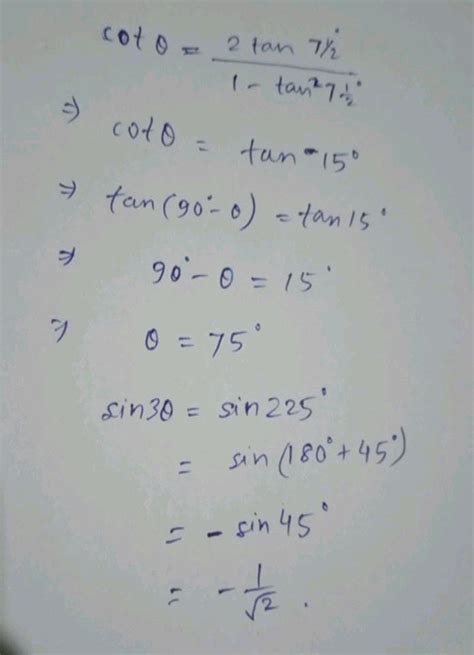 cot θ = 2 tan 7½° / 1 - tan² 7½°
⇒ cot θ = tan 15°
⇒ tan (90° - θ) = tan 15°
⇒ 90° - θ = 15°
⇒ θ = 75°
sin3θ = sin 225°
= sin (180° + 45°)
= - sin 45°
= - 1/√2 .